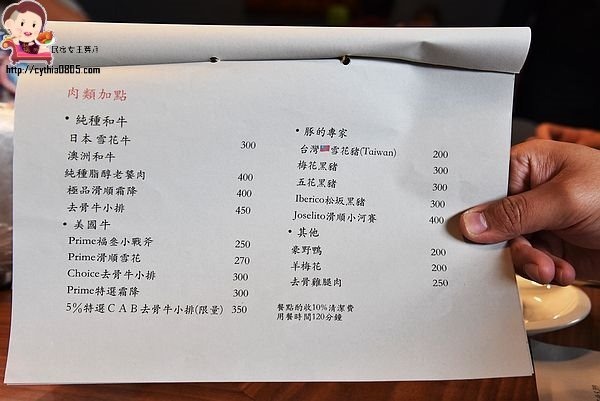 民宿女王芽月
http://cythia0805.com
肉類加點
• 純種和牛
日本 雪花牛 300
澳洲和牛
純種脂醇老饕肉 400
極品滑順霜降 400
去骨牛小排 450
• 美國牛
Prime福叁小戰斧 250
Prime滑順雪花 270
Choice去骨牛小排 300
Prime特選霜降 300
5%特選CAB去骨牛小排(限量) 350
• 豚的專家
台灣🇹🇼雪花豬(Taiwan) 200
梅花黑豬 300
五花黑豬 300
Iberico松坂黑豬 300
Joselito滑順小河賽 400
• 其他
豪野鴨 200
羊梅花 200
去骨雞腿肉 250
餐點酌收10%清潔費
用餐時間120分鐘